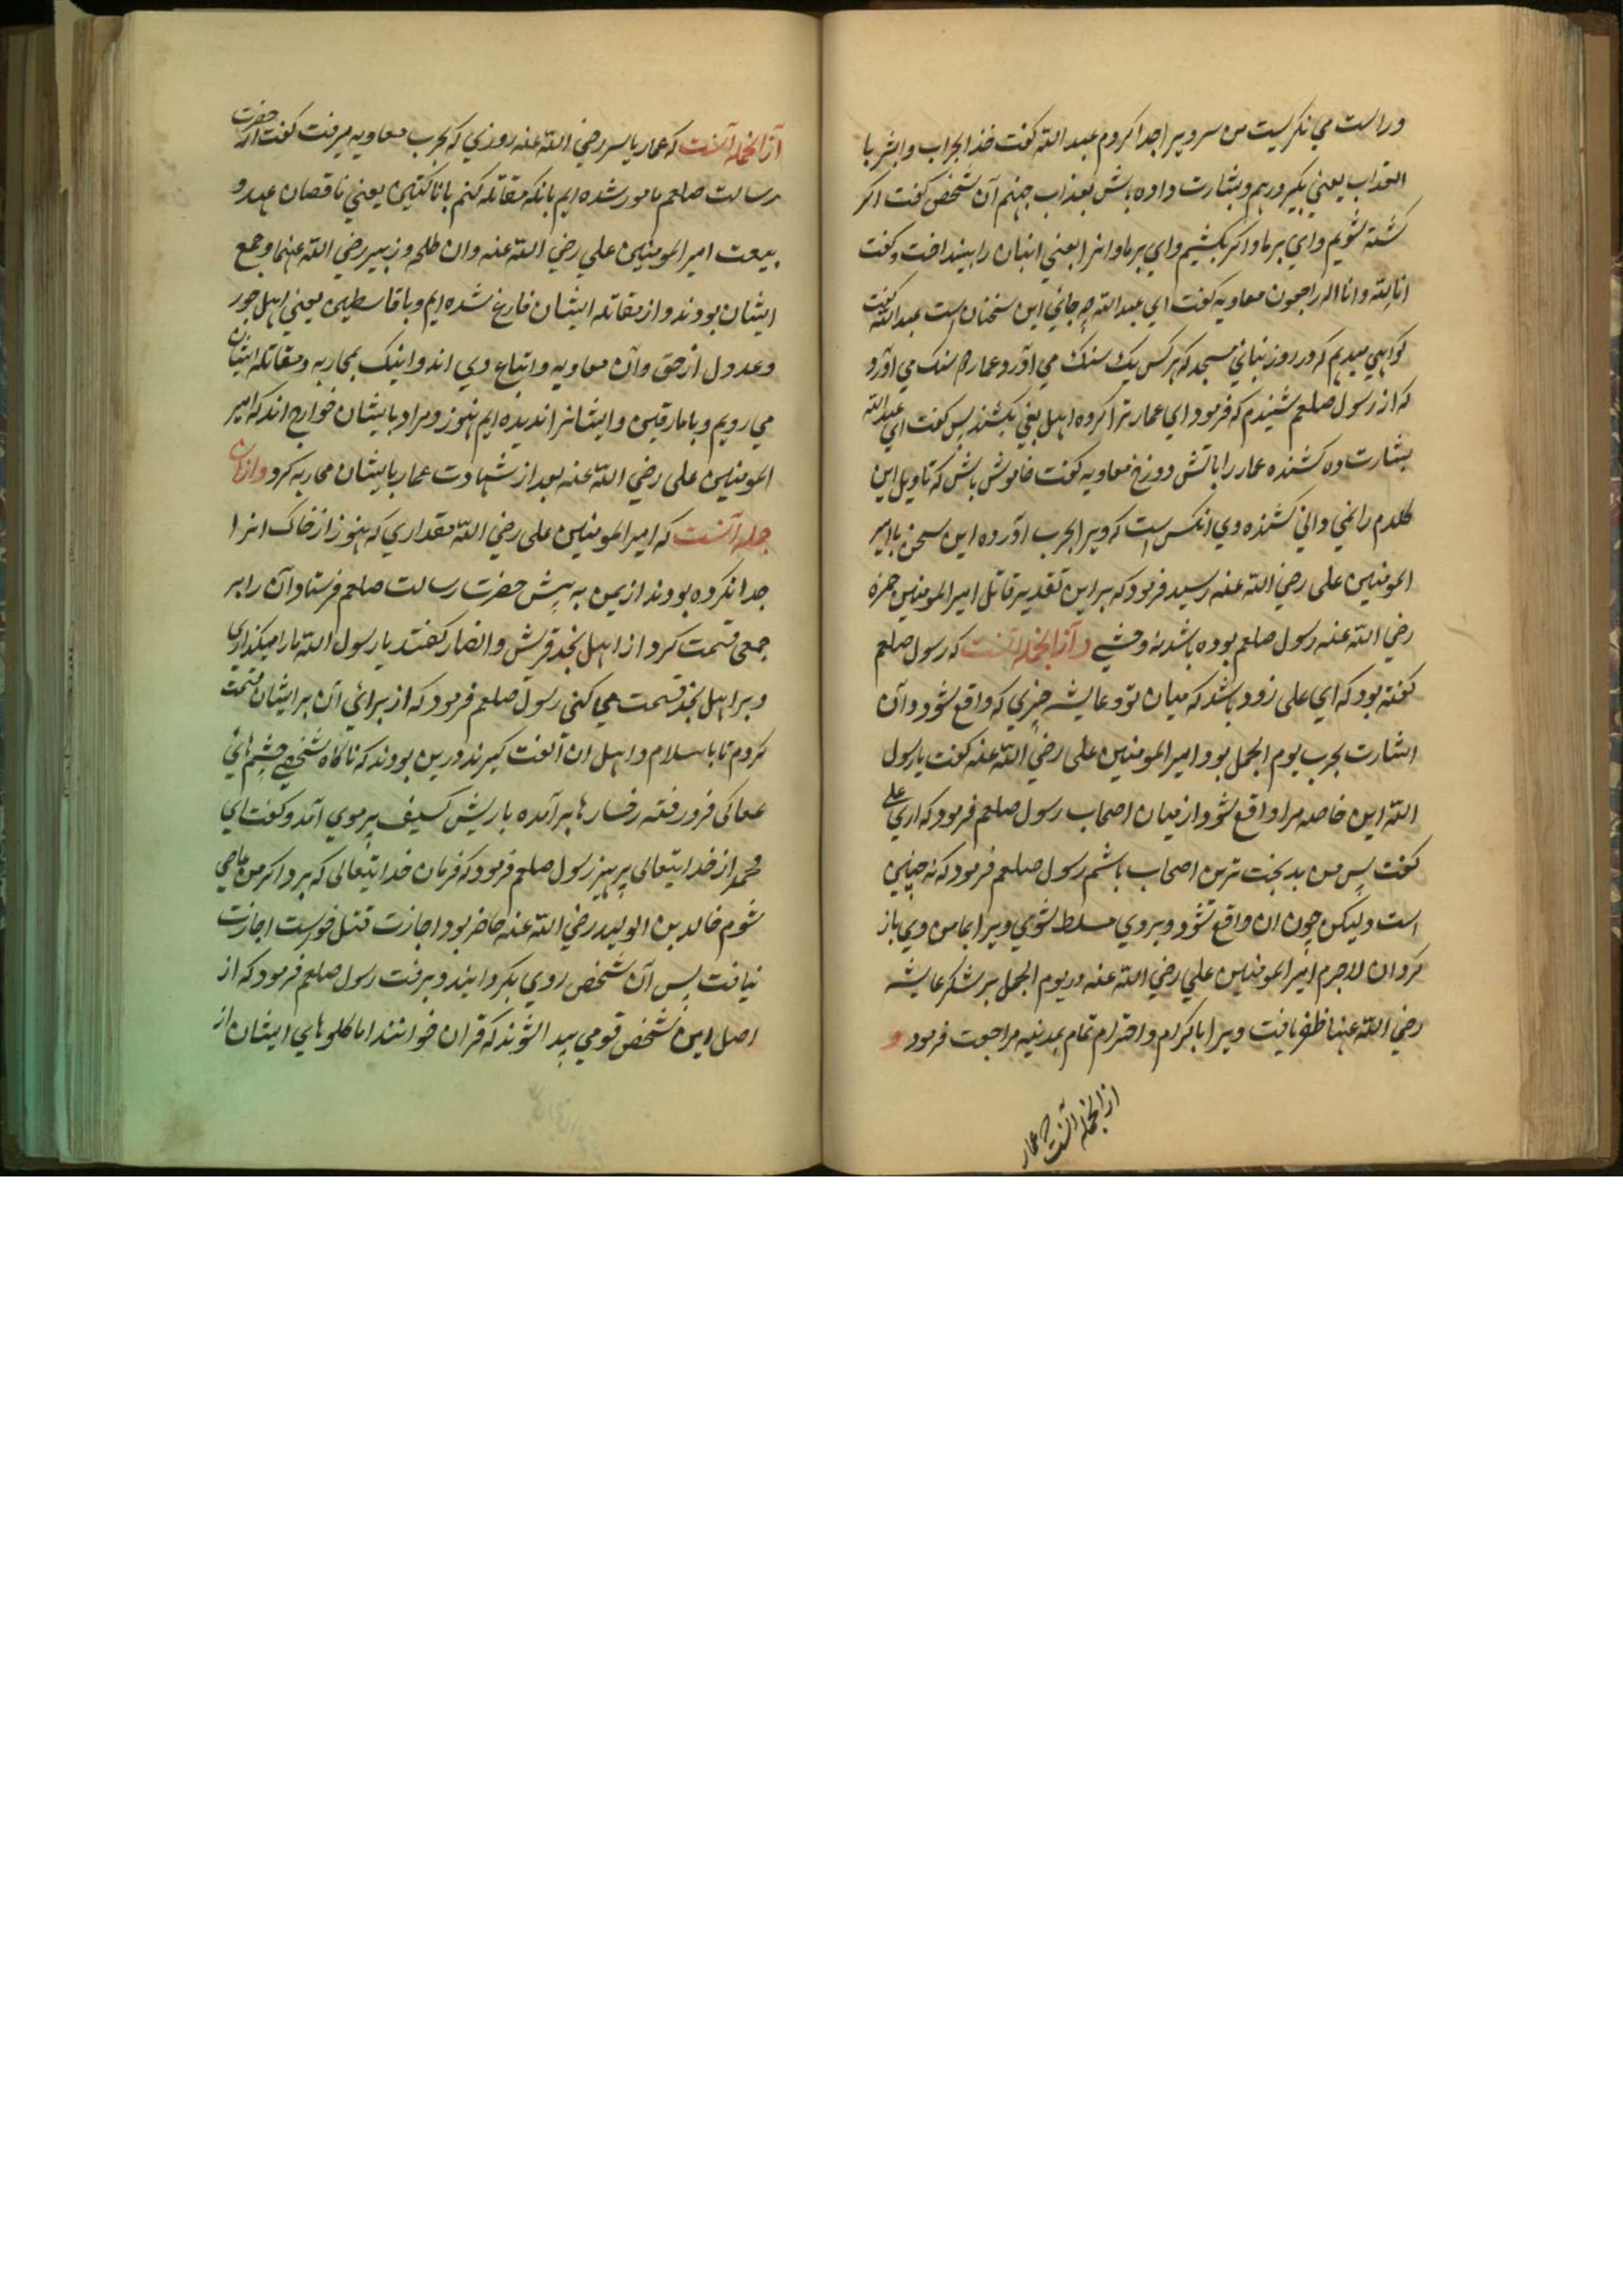 و راست می نکریست من سر ویرا جدا کردم عبد الله کفت خذ الجراب و ابشر با
العذاب یعنی بکیر درهم و بشارت داده باش بعذاب جهنم آن شخص کفت اکر
کشته شویم وای بر ما و اکر بکشیم وای بر ما و انرا یعنی انبان را بینداخت و کفت
انا لله و انا الیه راجعون معاویه کفت ای عبد الله چه جای این سخنان است عبد الله کفت
کواهی میدهم که در روز بنائی مسجد که هر کس یک سنک می آورد و عمار دو سنک می آورد
که از رسول صلعم شنیدم که فرمود ای عمار ترا کروه اهل بغی بکشند پس کفت ای عبد الله
بشارت ده کشنده عمار را باتش دوزخ معاویه کفت خاموش باش که تاویل این
کلام را نمی دانی کشنده وی انکس است که ویرا بحرب آورده این سخن با امیر
المومنین علی رضی الله عنه رسید فرمود که بر این تقدیر قاتل امیر المومنین حمزه
رضی الله عنه رسول صلعم بوده باشد نه وحشی و از انجمله آنست که رسول صلعم
کفته بود که ای علی زود باشد که میان تو و عایشه چیزی که واقع شود و آن
اشارت بحرب یوم الجمل بود امیر المومنین علی رضی الله عنه کفت یا رسول
الله این خاصه مرا واقع شود از میان اصحاب رسول صلعم فرمود که اری علی
کفت پس من بدبخت ترین اصحاب باشم رسول صلعم فرمود که نه چنین
است ولیکن چون ان واقع شود و بر وی مسلط شوی ویرا بمامن وی باز
کردان لاجرم امیر المومنین علی رضی الله عنه در یوم الجمل بر لشکر عایشه
رضی الله عنها ظفر یافت ویرا باکرام و احترام تمام بمدینه مراجعت فرمود و
از انجمله آنست که عمار
از انجمله آنست که عمار یاسر رضی الله عنه روزی که بحرب معاویه میرفت کفت از حضرت
رسالت صلعم مامور شده ایم بانکه مقاتله کنم با ناکثین یعنی ناقصان عهد و
بیعت امیر المومنین علی رضی الله عنه و ان طلحه و زبیر رضی الله عنهما و جمع
ایشان بودند و از مقاتله ایشان فارغ شده ایم و با قاسطین یعنی اهل جور
و عدول از حق و آن معاویه و اتباع وی اند و اینک بمحاربه و مقاتله ایشان
می رویم و با مارقین و ایشانرا ندیده ایم هنوز و مراد بایشان خوارج اند که امیر
المومنین علی رضی الله عنه بعد از شهادت عمار بایشان محاربه کرد و از ان
جمله آنست که امیر المومنین علی رضی الله مقداری که هنوز از خاک انرا
جدا نکرده بودند از یمن به پیش حضرت رسالت صلعم فرستاد آن را بر
جمعی قسمت کرد از اهل نجد قریش و انصار کفتند یا رسول الله ما را میکذاری
و بر اهل نجد قسمت می کنی رسول صلعم فرمود که از برائی آن بر ایشان قسمت
کردم تا باسلام و اهل ان الفت کیرند درین بودند که ناکاه شخصی چشم هائی
عفاکی فرو رفته رخسارها بر آمده با ریش کسیف پر موی آمد و کفت ای
محمد از خدایتعالی پرهیز رسول صلعم فرمود که فرمان خدایتعالی که برد اکر من عاصی
شوم خالد بن الولید رضی الله عنه حاضر بود اجازت قتل خواست اجازت
نیافت پس آن شخص روی بکردانید و برفت رسول صلعم فرمود که از
اصل این شخص قومی پیدا شوند که قران خوانند اما کلوهای ایشان از